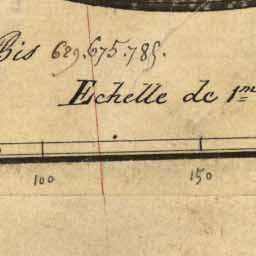 Bis 629.675.785.
Echelle de 1.m
100 150